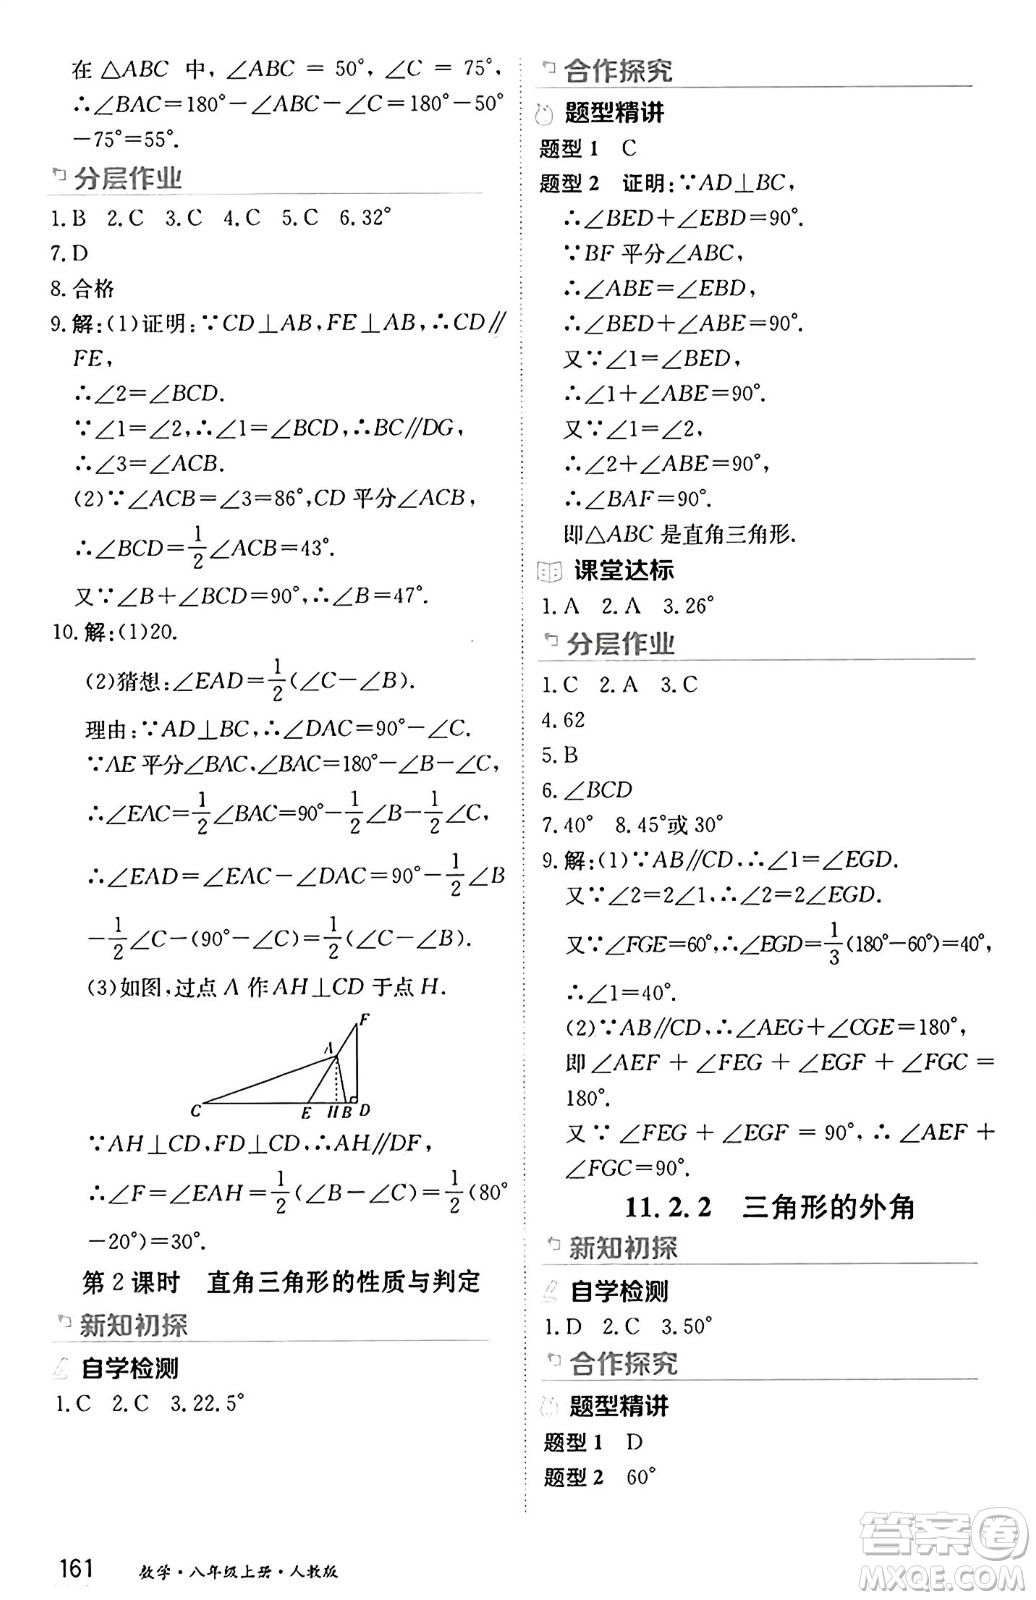 在 △ABC 中,∠ABC = 50°,∠C = 75°,
∴∠BAC=180°-∠ABC-∠C=180°-50°
-75°=55°.
分层作业
1.B 2.C 3.C 4.C 5.C 6.32°
7.D
8.合格
9.解:(1)证明:∵CD⊥AB,FE⊥AB,∴CD∥
FE,
∴∠2=∠BCD.
∵∠1=∠2,∴∠1=∠BCD,∴BC∥DG,
∴∠3=∠ACB.
(2)∵∠ACB=∠3=86°,CD 平分∠ACB,
∴∠BCD=1/2∠ACB=43°.
又∵∠B+∠BCD=90°,∴∠B=47°.
10.解:(1)20.
(2)猜想:∠EAD=1/2(∠C-∠B).
理由:∵AD⊥BC,∴∠DAC=90°-∠C.
∵AE平分∠BAC,∠BAC=180°-∠B-∠C,
∴∠EAC=1/2∠BAC=90°-1/2∠B-1/2∠C,
∴∠EAD=∠EAC-∠DAC=90°-1/2∠B
-1/2∠C-(90°-∠C)=1/2(∠C-∠B).
(3)如图,过点 A 作 AH⊥CD 于点 H.
F
A
C E H B D
∵AH⊥CD,FD⊥CD,∴AH∥DF,
∴∠F=∠EAH=1/2(∠ABE-∠C)=1/2(80°
-20°)=30°.
第 2 课时 直角三角形的性质与判定
新知初探
自学检测
1.C 2.C 3.22.5°
合作探究
题型精讲
题型 1 C
题型 2 证明:∵AD⊥BC,
∴∠BED+∠EBD=90°.
∵BF 平分∠ABC,
∴∠ABE=∠EBD,
∴∠BED+∠ABE=90°.
又∵∠1=∠BED,
∴∠1+∠ABE=90°.
又∵∠1=∠2,
∴∠2+∠ABE=90°,
∴∠BAF=90°.
即△ABC 是直角三角形.
课堂达标
1.A 2.A 3.26°
分层作业
1.C 2.A 3.C
4.62
5.B
6.∠BCD
7.40° 8.45°或 30°
9.解:(1)∵AB∥CD,∴∠1=∠EGD.
又∵∠2=2∠1,∴∠2=2∠EGD.
又∵∠FGE=60°,∴∠EGD=1/3(180°-60°)=40°,
∴∠1=40°.
(2)∵AB∥CD,∴∠AEG+∠CGE=180°,
即 ∠AEF + ∠FEG + ∠EGF + ∠FGC =
180°.
又 ∵ ∠FEG + ∠EGF = 90°, ∴ ∠AEF +
∠FGC=90°.
11.2.2 三角形的外角
新知初探
自学检测
1.D 2.C 3.50°
合作探究
题型精讲
题型 1 D
题型 2 60°
161 数学·八年级上册·人教版
答案圈
MXQE.COM